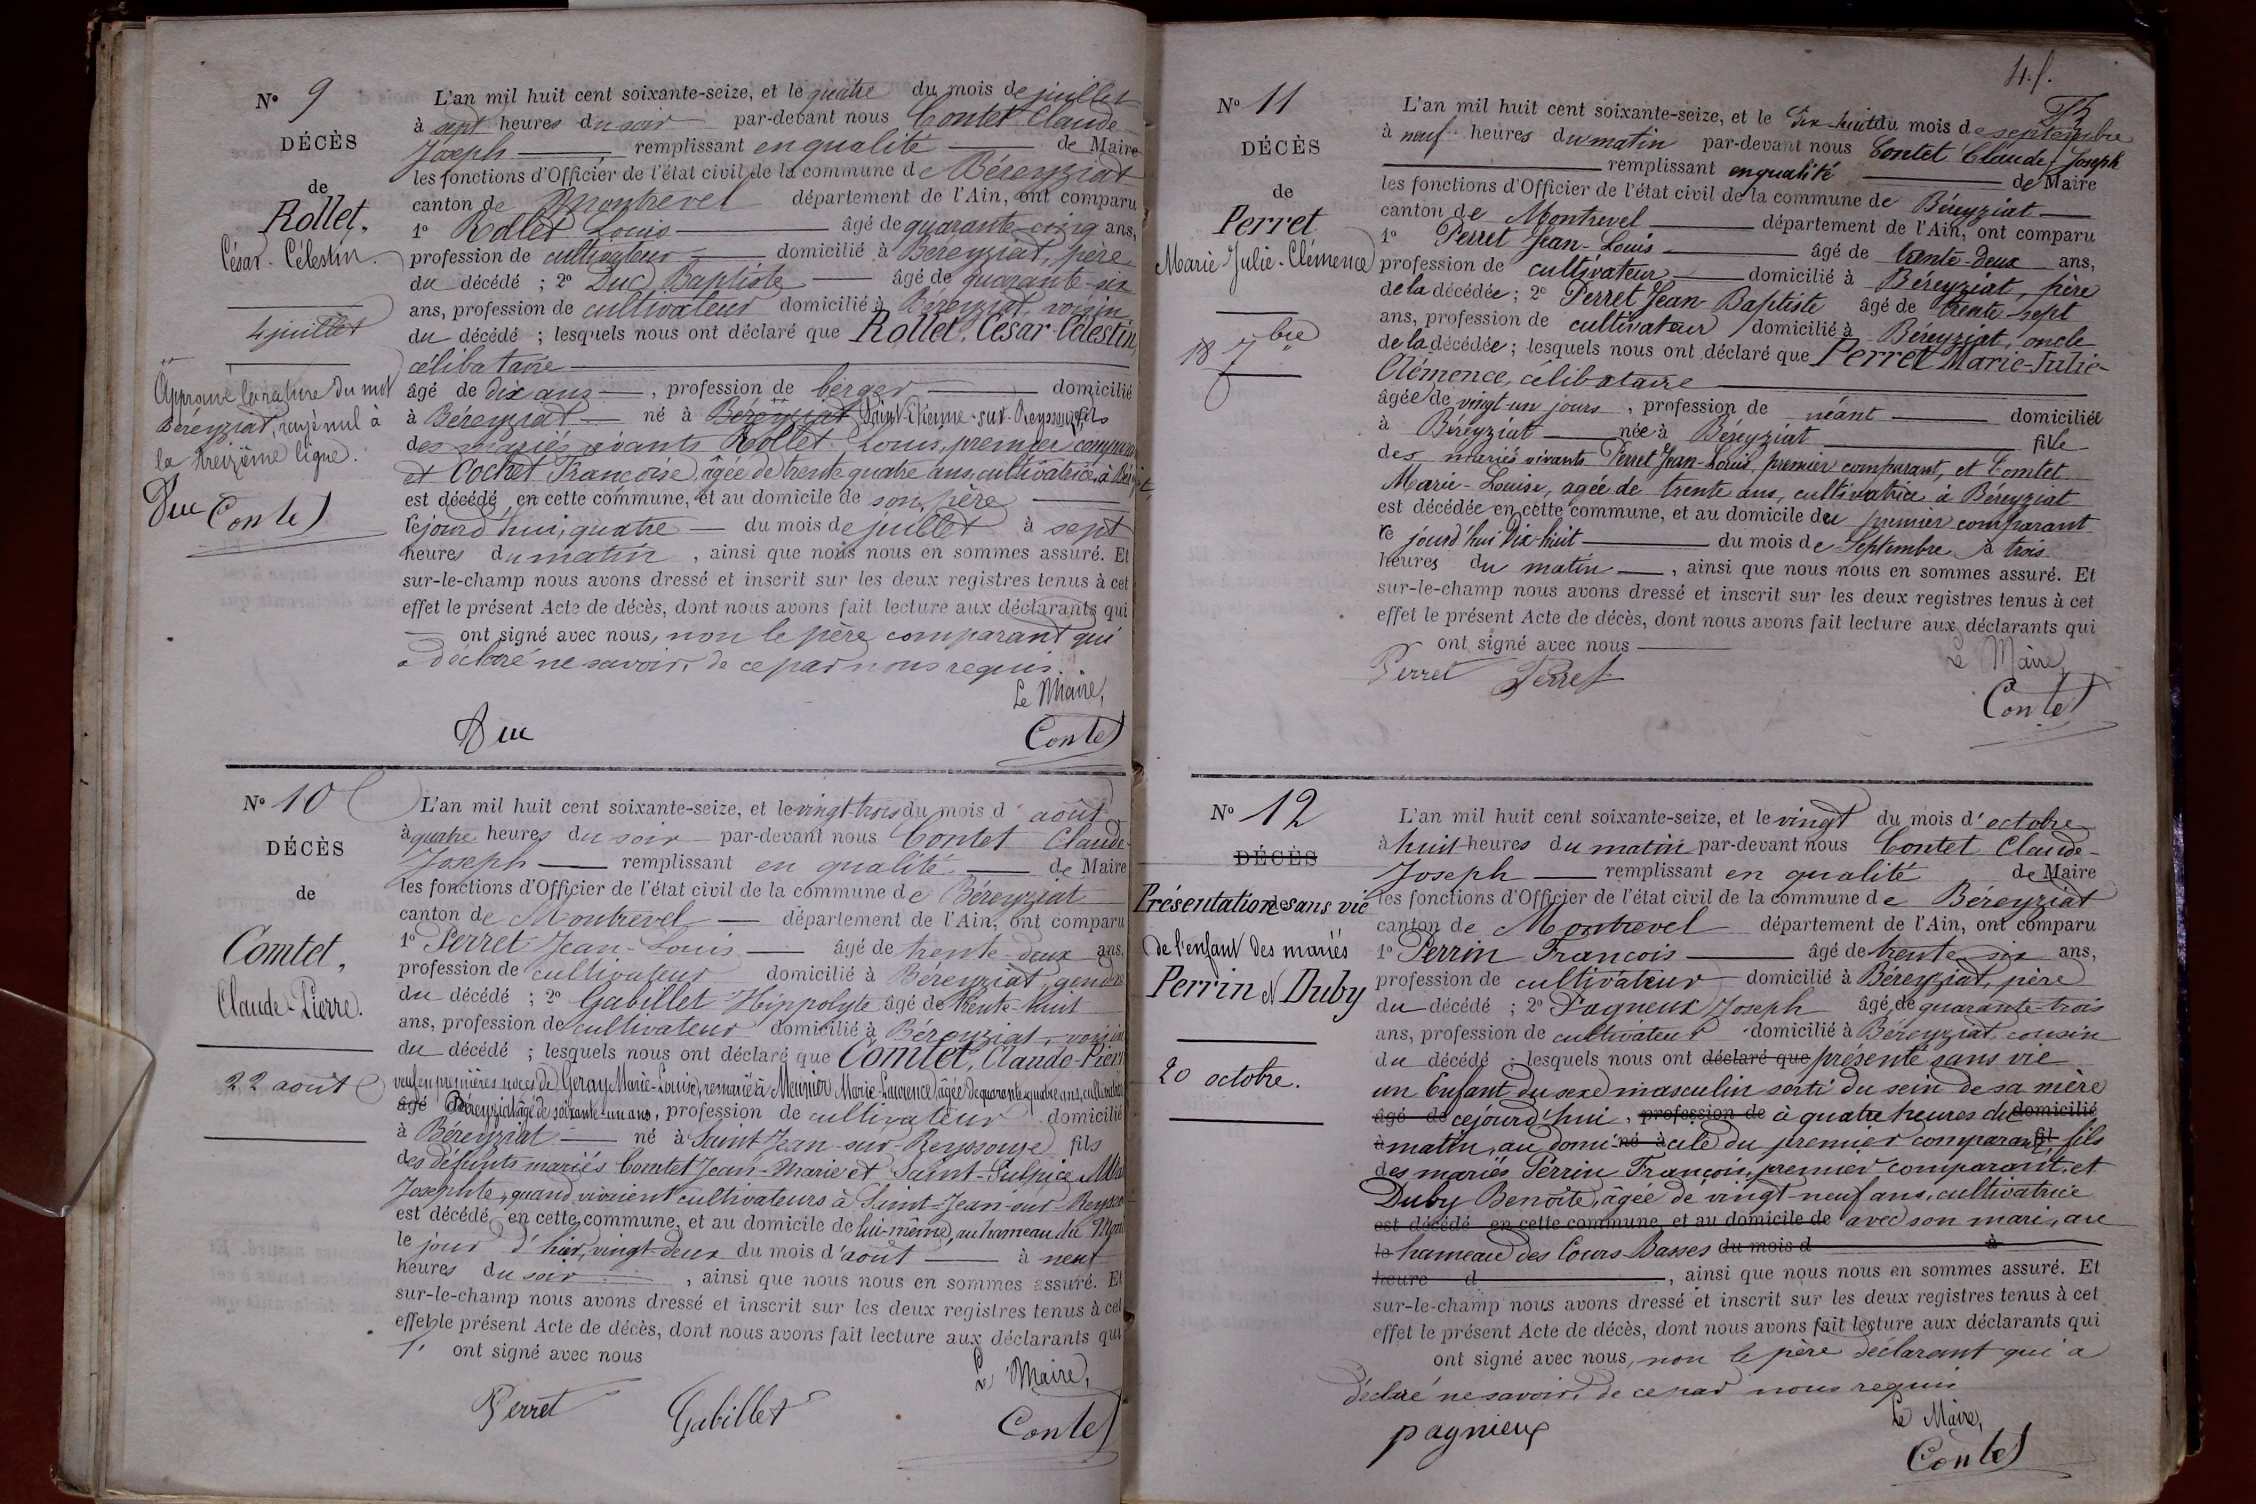 Nº 9
DÉCÈS
de
Rollet,
César-Célestin.
4 juillet
Approuvé la rature du mot
Béreyziat, rayé nul à
la treizième ligne.
Duc Contet
L'an mil huit cent soixante-seize, et le quatre du mois de juillet
à sept heures du soir par-devant nous Contet Claude
Joseph remplissant en qualité de Maire
les fonctions d'Officier de l'état civil de la commune de Béreyziat
canton de Montrevel département de l'Ain, ont comparu
1º Rollet Louis âgé de quarante-cinq ans,
profession de cultivateur domicilié à Béreyziat, père
du décédé ; 2º Duc Baptiste âgé de quarante-six
ans, profession de cultivateur domicilié à Béreyziat, voisin
du décédé ; lesquels nous ont déclaré que Rollet, César-Célestin,
célibataire
âgé de dix ans, profession de berger domicilié
à Béreyziat né à Béreyziat Saint-Etienne-sur-Reyssouze, fils
des mariés vivants Rollet Louis, premier comparant
et Cochet Françoise, âgée de trente quatre ans, cultivatrice, à Béreyziat
est décédé en cette commune, et au domicile de son père
cejourd'hui, quatre du mois de juillet à sept
heures du matin, ainsi que nous nous en sommes assuré. Et
sur-le-champ nous avons dressé et inscrit sur les deux registres tenus à cet
effet le présent Acte de décès, dont nous avons fait lecture aux déclarants qui
ont signé avec nous, non le père comparant qui
a déclaré ne savoir, de ce par nous requis.
Le Maire,
Duc Contet
Nº 10
DÉCÈS
de
Comtet,
Claude-Pierre.
22 août
L'an mil huit cent soixante-seize, et le vingt-trois du mois d'août
à quatre heures du soir par-devant nous Contet Claude-
Joseph remplissant en qualité de Maire
les fonctions d'Officier de l'état civil de la commune de Béreyziat
canton de Montrevel département de l'Ain, ont comparu
1º Perret Jean-Louis âgé de trente-deux ans,
profession de cultivateur domicilié à Béreyziat, gendre
du décédé ; 2º Gabillet Hippolyte âgé de trente-huit
ans, profession de cultivateur domicilié à Béreyziat, voisin
du décédé ; lesquels nous ont déclaré que Comtet, Claude-Pierre
veuf en premières noces de Geray Marie-Louise, remarié à Meunier Marie-Laurence, âgée de quarante-quatre ans, cultivatrice
âgé de à Béreyziat âgé de soixante-un ans, profession de cultivateur domicilié
à Béreyziat né à Saint Jean-sur-Reyssouze fils
des défunts mariés Comtet Jean-Marie et Saint-Sulpice
Josephte, quand vivaient cultivateurs à Saint-Jean-sur-Reyssouze
est décédé en cette commune, et au domicile de lui-même, au hameau du
le jour d'hier, vingt-deux du mois d'août à neuf
heures du soir, ainsi que nous nous en sommes assuré. Et
sur-le-champ nous avons dressé et inscrit sur les deux registres tenus à cet
effet le présent Acte de décès, dont nous avons fait lecture aux déclarants qui
ont signé avec nous
Le Maire,
Perret Gabillet Contet
4.f.
Nº 11
DÉCÈS
de
Perret
Marie-Julie-Clémence
18 7bre
L'an mil huit cent soixante-seize, et le Dix-huit du mois de septembre
à neuf heures du matin par-devant nous Contet Claude-Joseph
remplissant en qualité de Maire
les fonctions d'Officier de l'état civil de la commune de Béreyziat
canton de Montrevel département de l'Ain, ont comparu
1º Perret Jean-Louis âgé de trente-deux ans,
profession de cultivateur domicilié à Béreyziat, père
de la décédée ; 2º Perret Jean-Baptiste âgé de trente-sept
ans, profession de cultivateur domicilié à Béreyziat, oncle
de la décédée ; lesquels nous ont déclaré que Perret Marie-Julie-
Clémence, célibataire
âgée de vingt-un jours, profession de néant domiciliée
à Béreyziat née à Béreyziat fille
des mariés vivants Perret Jean-Louis, premier comparant, et Comtet
Marie-Louise, agée de trente ans, cultivatrice à Béreyziat
est décédée en cette commune, et au domicile du premier comparant
ce jourd'hui Dix-huit du mois de Septembre à trois
heures du matin, ainsi que nous nous en sommes assuré. Et
sur-le-champ nous avons dressé et inscrit sur les deux registres tenus à cet
effet le présent Acte de décès, dont nous avons fait lecture aux déclarants qui
ont signé avec nous
Le Maire,
Perret Perret Contet
Nº 12
DÉCÈS
de
Présentation sans vie
de l'enfant des mariés
Perrin et Duby
20 octobre.
L'an mil huit cent soixante-seize, et le vingt du mois d'octobre
à huit heures du matin par-devant nous Contet Claude-
Joseph remplissant en qualité de Maire
les fonctions d'Officier de l'état civil de la commune de Béreyziat
canton de Montrevel département de l'Ain, ont comparu
1º Perrin François âgé de trente-six ans,
profession de cultivateur domicilié à Béreyziat, père
du décédé ; 2º Pagneux Joseph âgé de quarante-trois
ans, profession de cultivateur domicilié à Béreyziat, cousin
du décédé ; lesquels nous ont déclaré que présenté sans vie
un Enfant du sexe masculin sorti du sein de sa mère
âgé de cejourd'hui, profession de à quatre heures du domicilié
à matin, au domi- né à cile du premier comparant, fil fils
des mariés Perrin François, premier comparant, et
Duby Benoîte, âgée de vingt neuf ans, cultivatrice
est décédé en cette commune, et au domicile de avec son mari, au
le hameau des Cours Basses du mois d à
heure d, ainsi que nous nous en sommes assuré. Et
sur-le-champ nous avons dressé et inscrit sur les deux registres tenus à cet
effet le présent Acte de décès, dont nous avons fait lecture aux déclarants qui
ont signé avec nous, non le père déclarant qui a
déclaré ne savoir, de ce par nous requis
Le Maire,
pagnieux Contet